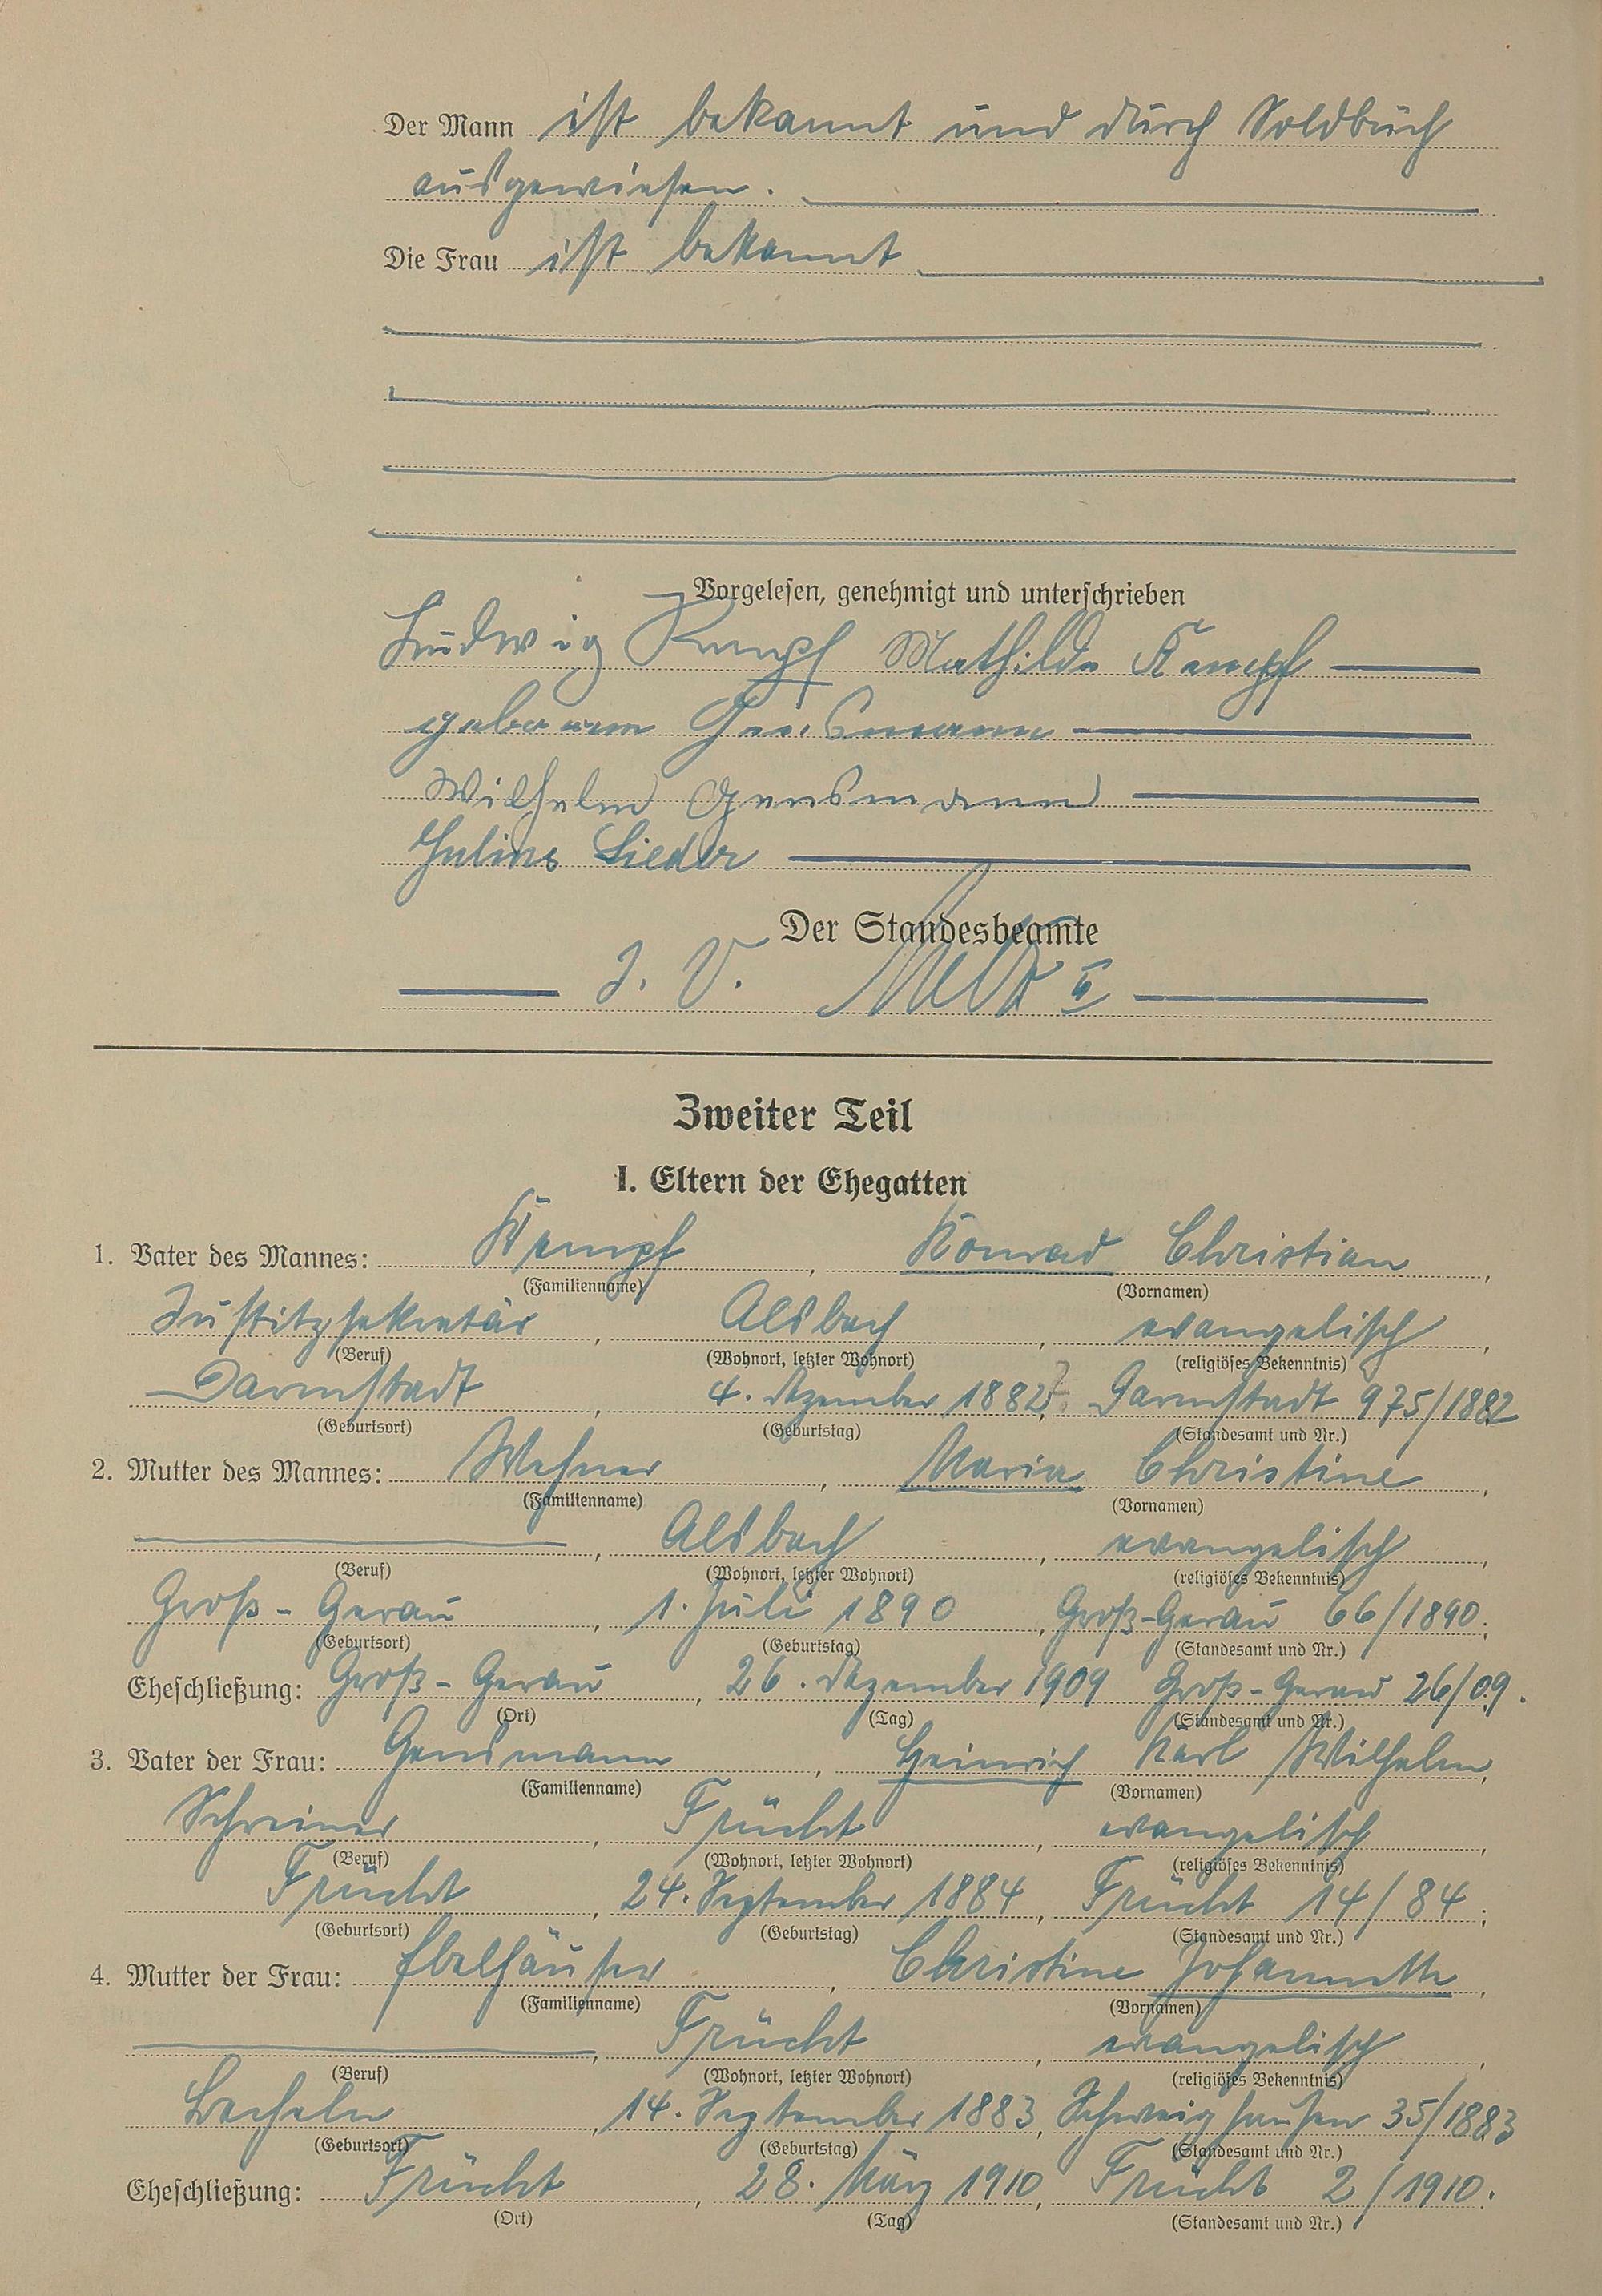 Der Mann ist bekannt und durch Soldbuch
ausgewiesen.
Die Frau ist bekannt
Vorgelesen, genehmigt und unterschrieben
Ludwig Kempf Mathilde Kempf
geborene Gensmann
Wilhelm Gensmann
Julius Lieder
Der Standesbeamte
J. V.
Zweiter Teil
I. Eltern der Ehegatten
1. Vater des Mannes: Kempf, Konrad Christian,
(Familienname) (Vornamen)
Justitzsekretär, Alsbach, evangelisch,
(Beruf) (Wohnort, letzter Wohnort) (religiöses Bekenntnis)
Darmstadt, 4. Dezember 1882, Darmstadt 975/1882
(Geburtsort) (Geburtstag) (Standesamt und Nr.)
2. Mutter des Mannes: Wehner, Maria Christine,
(Familienname) (Vornamen)
, Alsbach, evangelisch,
(Beruf) (Wohnort, letzter Wohnort) (religiöses Bekenntnis)
Groß-Gerau, 1. Juli 1890, Groß-Gerau 66/1890;
(Geburtsort) (Geburtstag) (Standesamt und Nr.)
Eheschließung: Groß-Gerau, 26. Dezember 1909 Groß-Gerau 26/09.
(Ort) (Tag) (Standesamt und Nr.)
3. Vater der Frau: Gensmann, Heinrich Karl Wilhelm,
(Familienname) (Vornamen)
Schreiner, Frücht, evangelisch,
(Beruf) (Wohnort, letzter Wohnort) (religiöses Bekenntnis)
Frücht, 24. September 1884, Frücht 14/84;
(Geburtsort) (Geburtstag) (Standesamt und Nr.)
4. Mutter der Frau: Ebelhäuser, Christine Johannette,
(Familienname) (Vornamen)
, Frücht, evangelisch,
(Beruf) (Wohnort, letzter Wohnort) (religiöses Bekenntnis)
Becheln, 14. September 1883, Schweighausen 35/1883
(Geburtsort) (Geburtstag) (Standesamt und Nr.)
Eheschließung: Frücht, 28. März 1910, Frücht 2/1910.
(Ort) (Tag) (Standesamt und Nr.)